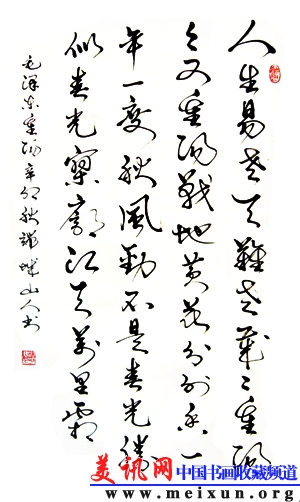 人生易老天難老歲々重陽
今又重陽戰地黄花分外香一
年一度秋風勁不是春光勝
似春光寥廓江天萬里霜
毛澤東重陽辛卯秋山人书
美讯网 中国书画收藏频道
www.meixun.org